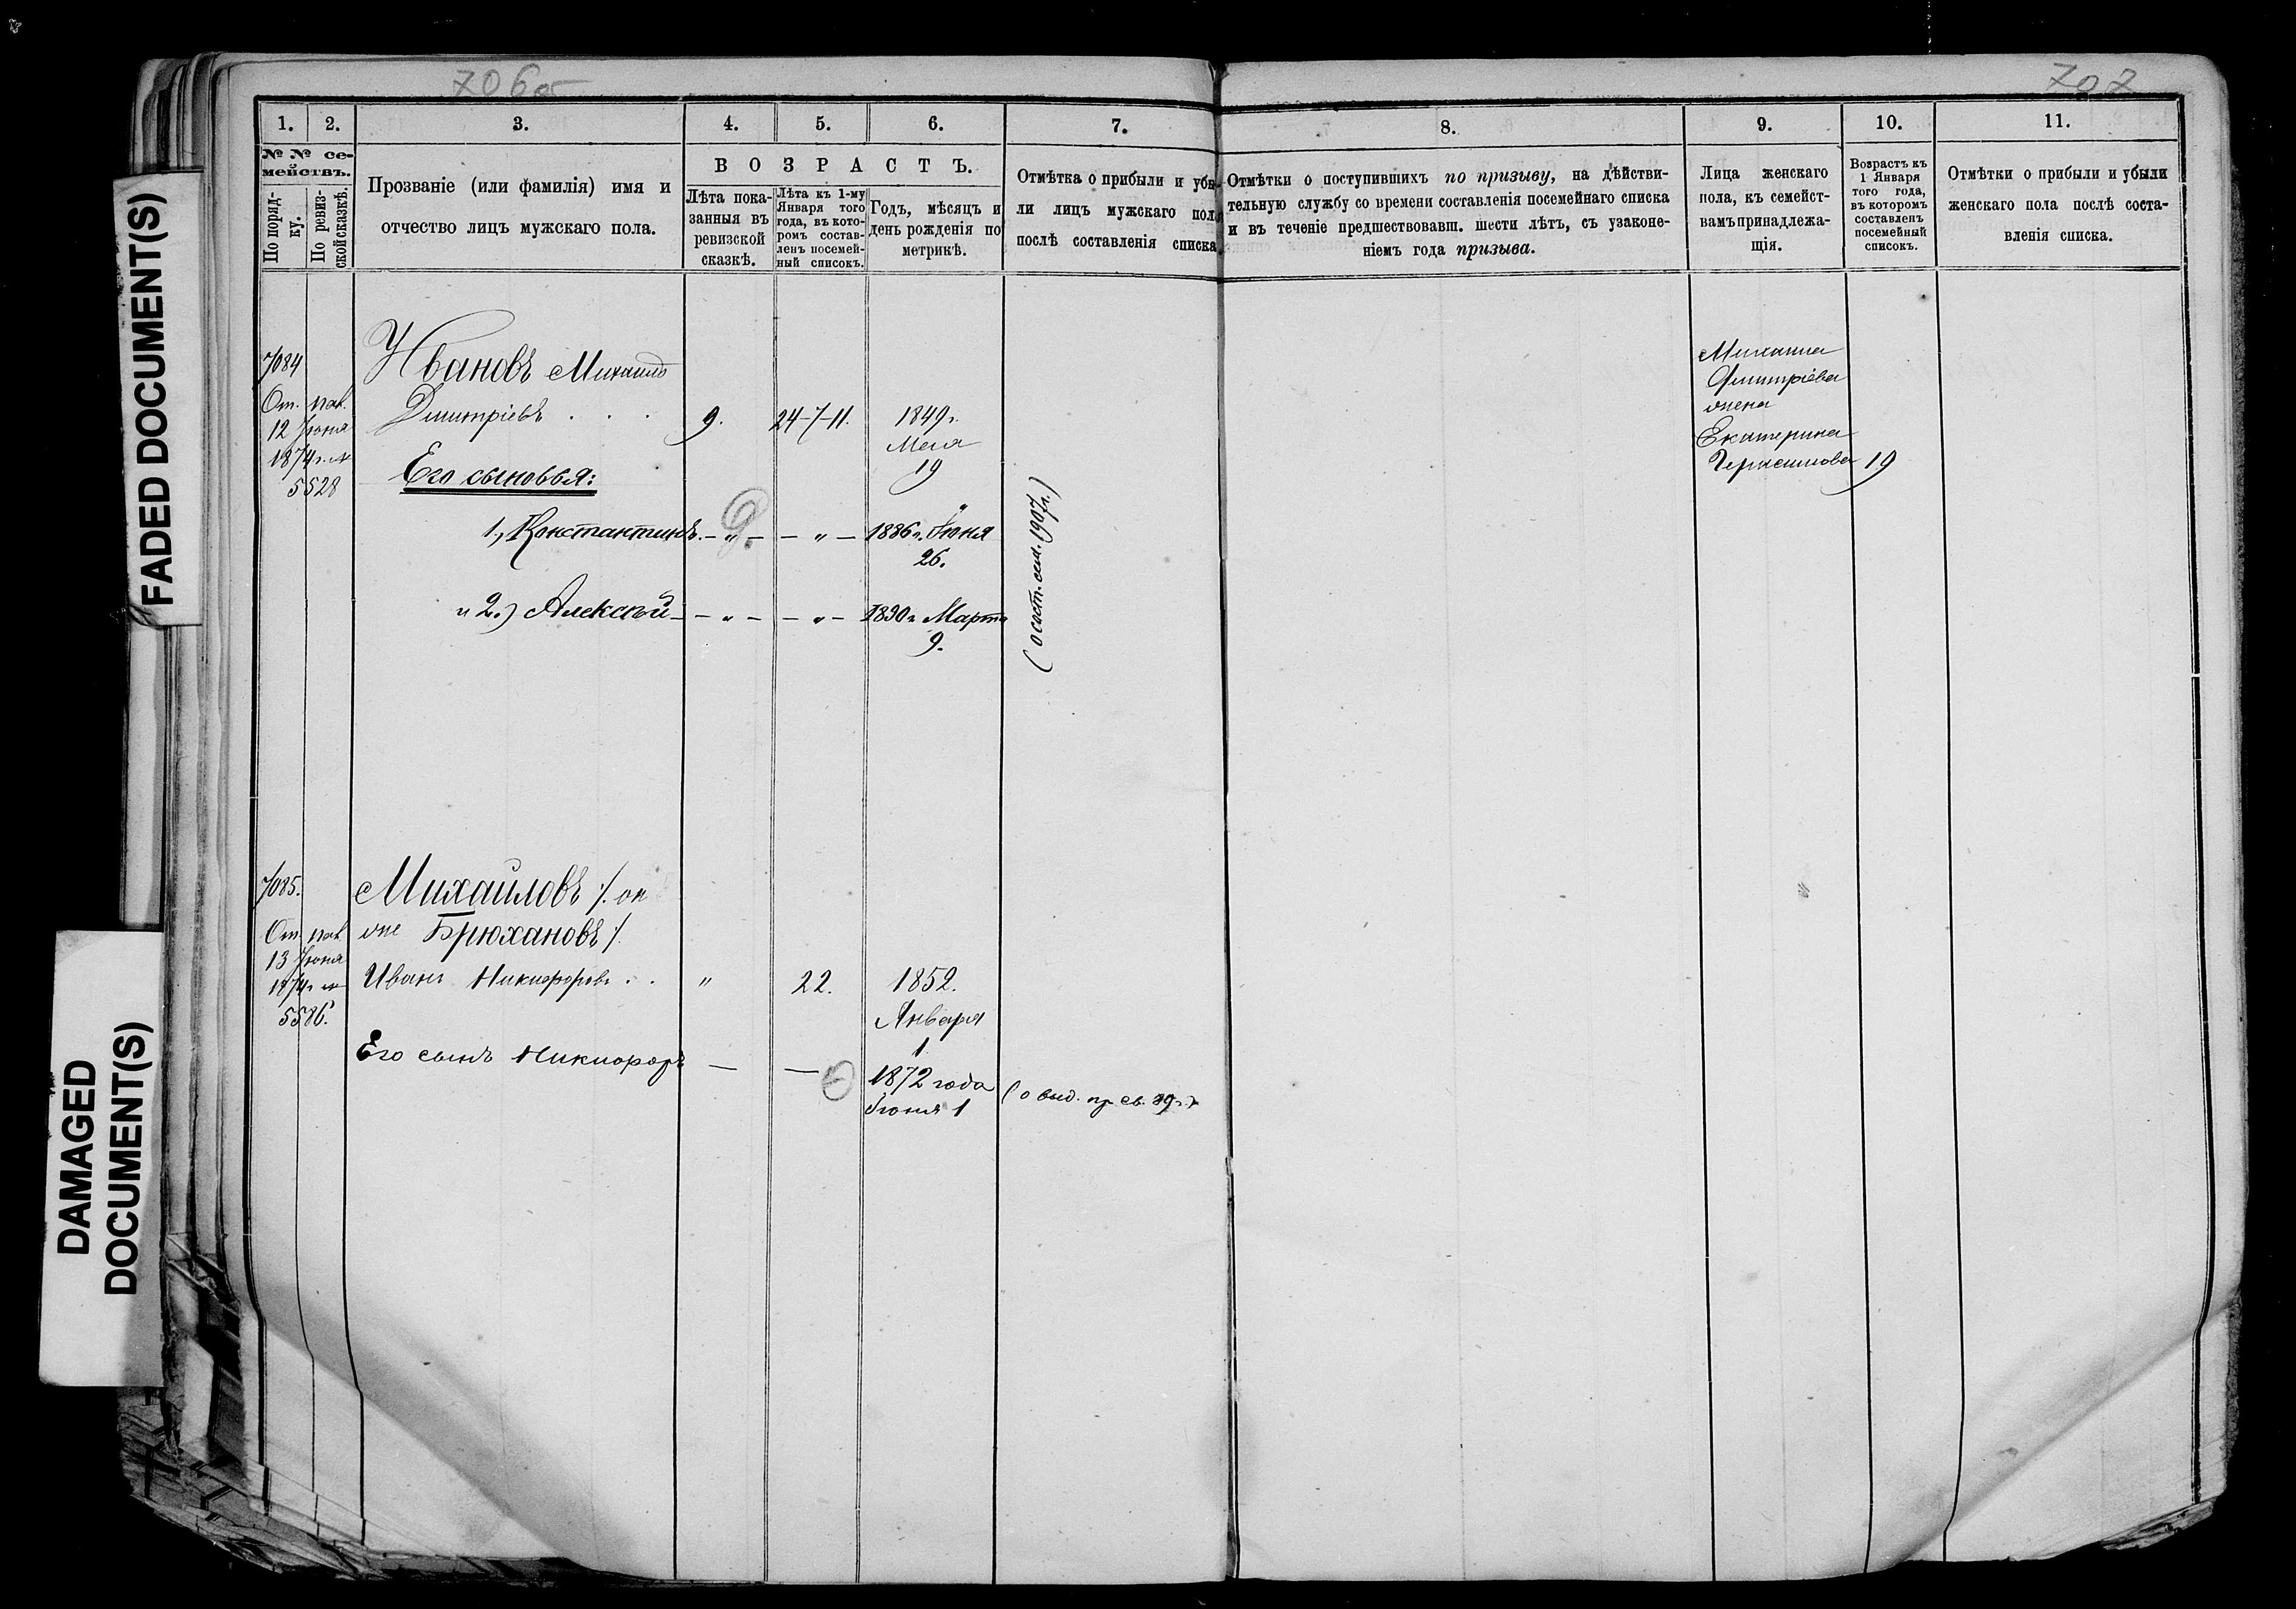 706об
707
FADED DOCUMENT(S)
DAMAGED
DOCUMENT(S)
1. 2. 3. 4. 5. 6. 7.
№ № се-
мействъ.
По поряд-
ку.
По ревиз-
ской сказкѣ.
Прозваніе (или фамилія) имя и
отчество лицъ мужскаго пола.
ВОЗРАСТЪ.
Лѣта пока-
занныя въ
ревизской
сказкѣ.
Лѣта къ 1-му
Января того
года, въ кото-
ромъ состав-
ленъ посемей-
ный списокъ.
Годъ, мѣсяцъ и
день рожденія по
метрикѣ.
Отмѣтка о прибыли и убы-
ли лицъ мужскаго пола
послѣ составленія списка
8. 9. 10. 11.
Отмѣтки о поступившихъ по призыву, на дѣйстви-
тельную службу со времени составленія посемейнаго списка
и въ теченіе предшествовавш. шести лѣтъ, съ узаконе-
ніемъ года призыва.
Лица женскаго
пола, къ семейст-
вамъ принадлежа-
щія.
Возрастъ къ
1 Января
того года,
въ которомъ
составленъ
посемейный
списокъ.
Отмѣтки о прибыли и убыли
женскаго пола послѣ соста-
вленія списка.
7084
От. пов.
12 Июня
1874 г. №
5528
Ивановъ Михаилъ
Дмитріевъ . . . 9. 24-7-11. 1849 г.
Мая
19
Его сыновья:
1., Константинъ. — „ — — „ — 1886 г. Іюня
26.
и 2.) Алексѣй — — „ — — „ — 1890 г. Марта
9.
(о сост. сем. 1907 г.)
Михаила
Дмитріева
жена
Екатерина
Герасимова 19
7085.
От. пов.
13 Июня
1874 г. №
5586.
Михайловъ /. он
же Брюхановъ /.
Иванъ Никифоровъ . . „ 22. 1852.
Января
1
Его сынъ Никифоръ — — 1872 года
Іюня 1
(о выд. пр. св. 89 г.)